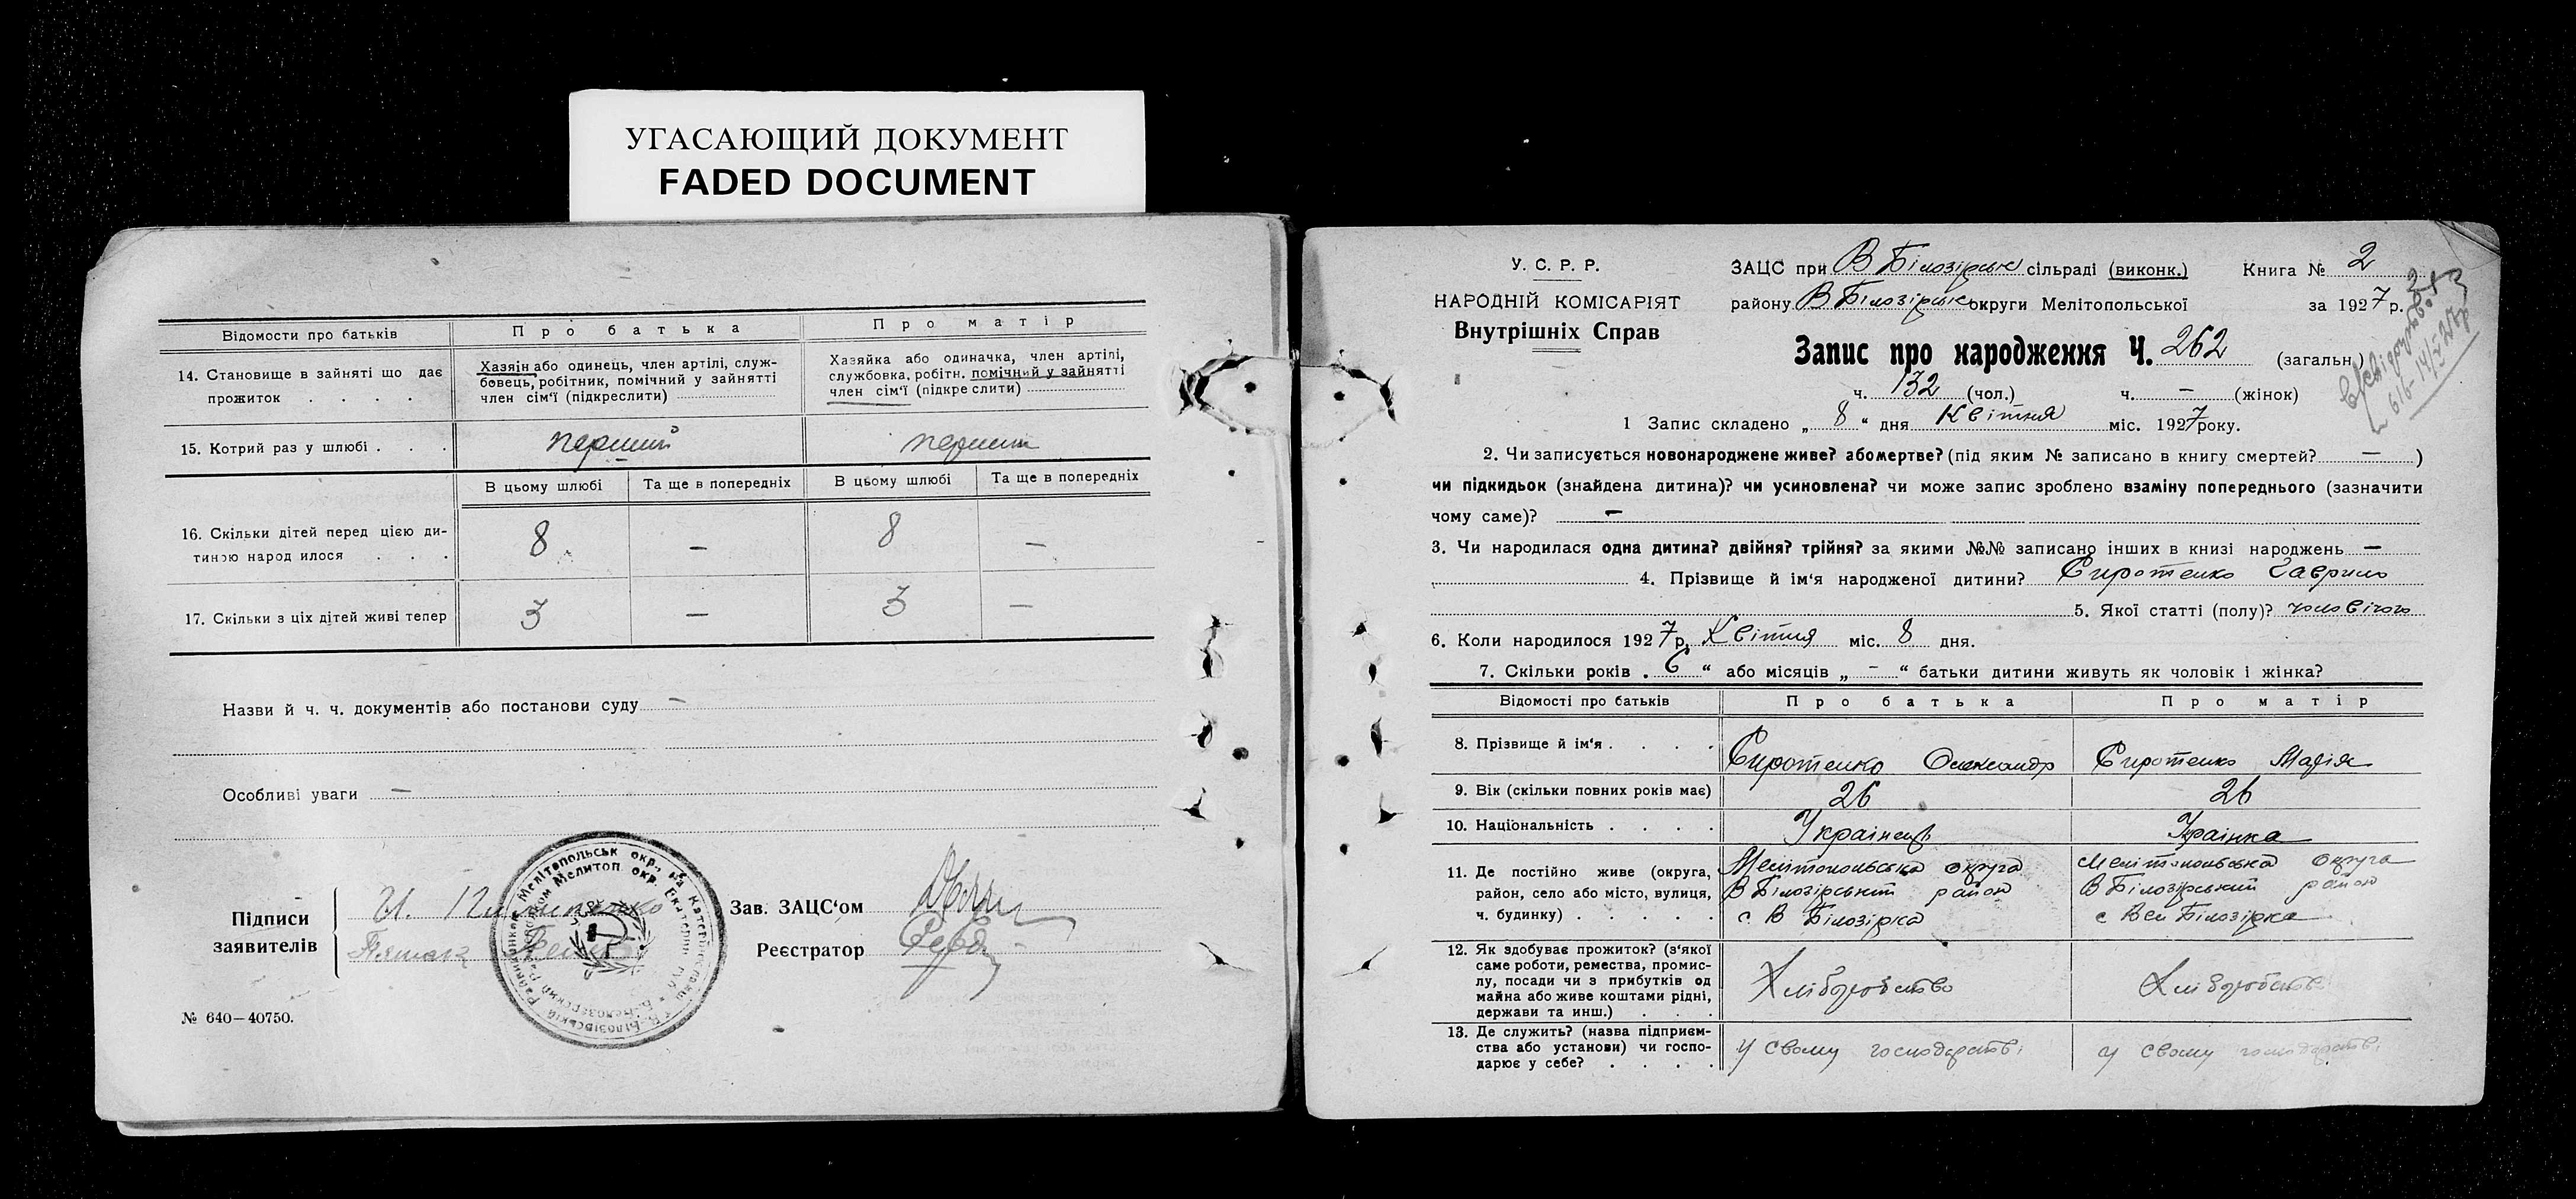 УГАСАЮЩИЙ ДОКУМЕНТ
FADED DOCUMENT
Відомости про батьків Про батька Про матір
14. Становище в зайняті що дає прожиток . . . .
Хазяін або одинець, член артілі, служ-
бовець, робітник, помічний у зайнятті
член сім'ї (підкреслити)
Хазяйка або одиначка, член артілі,
службовка, робітн. помічний у зайнятті
член сім'ї (підкреслити)
15. Котрий раз у шлюбі . . . перший перший
В цьому шлюбі Та ще в попередніх В цьому шлюбі Та ще в попередніх
16. Скільки дітей перед цією ди-
тиною народилося . . . 8 — 8 —
17. Скільки з ціх дітей живі тепер 3 — 3 —
Назви й ч. ч. документів або постанови суду —
Особливі уваги —
Підписи
заявителів
Зав. ЗАЦС'ом
Реєстратор
№ 640—40750.
У. С. Р. Р.
НАРОДНІЙ КОМІСАРІЯТ
Внутрішніх Справ
ЗАЦС при В Білозірськ сільраді (виконк.) Книга № 2
району В Білозірськ округи Мелітопольської за 1927 р.
Запис про народження Ч. 262 (загальн.)
ч. 132 (чол.) ч. — (жінок)
1 Запис складено „ 8 “ дня Квітня міс. 1927 року.
2. Чи записується новонароджене живе? або мертве? (під яким № записано в книгу смертей? — )
чи підкидьок (знайдена дитина)? чи усиновлена? чи може запис зроблено взаміну попереднього (зазначити
чому саме)? —
3. Чи народилася одна дитина? двійня? трійня? за якими №№ записано інших в книзі народжень —
4. Прізвище й ім'я народженої дитини? Сиротенко Гаврило
5. Якої статті (полу)? чоловічого
6. Коли народилося 1927 р. Квітня міс. 8 дня.
7. Скільки років „ 6 “ або місяців „ - “ батьки дитини живуть як чоловік і жінка?
Відомості про батьків Про батька Про матір
8. Прізвище й ім'я . . . . Сиротенко Олександр Сиротенко Марія
9. Вік (скільки повних років має) 26 26
10. Національність . . . . Українець Українка
11. Де постійно живе (округа,
район, село або місто, вулиця,
ч. будинку) . . . . .
Мелітопольська округа
В Білозірський район
с. В Білозірка
Мелітопольська округа
В Білозірський район
с Вел Білозірка
12. Як здобуває прожиток? (з'якої
саме роботи, ремества, промис-
лу, посади чи з прибутків од
майна або живе коштами рідні,
держави та инш.) . . .
Хліборобство Хліборобство
13. Де служить? (назва підприєм-
ства або установи) чи госпо-
дарює у себе? . . . .
у свому господарстві у свому господарстві